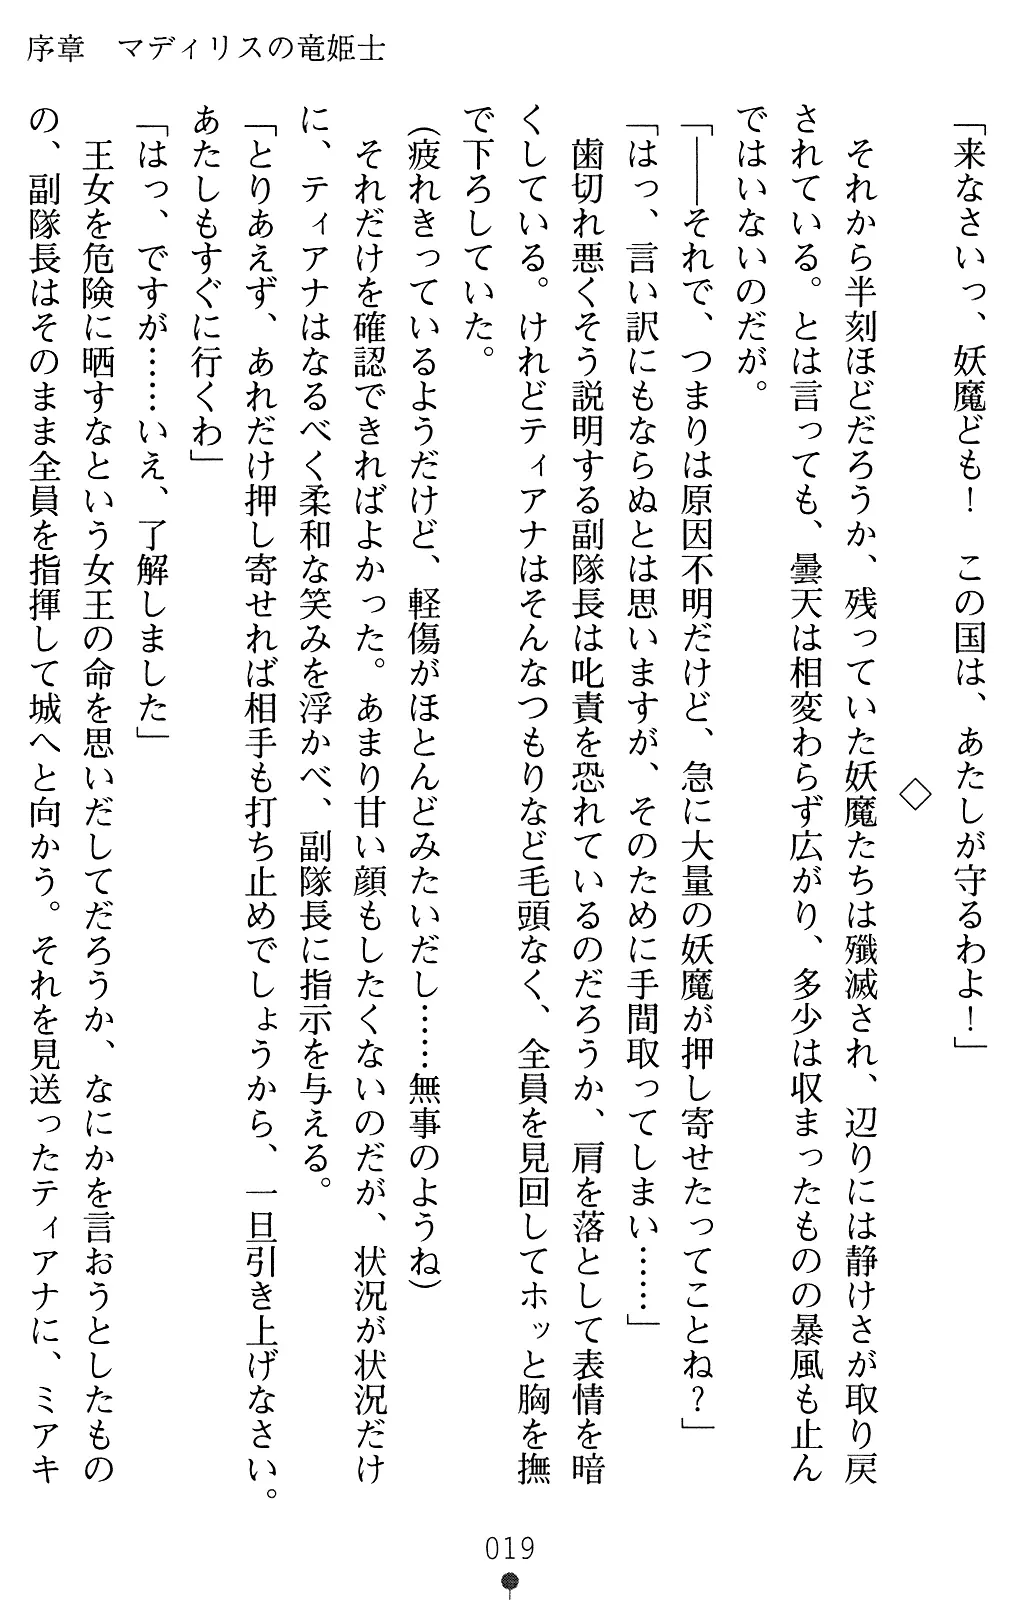 序章　マディリスの竜姫士
「来なさいっ、妖魔ども！　この国は、あたしが守るわよ！」
◇
それから半刻ほどだろうか、残っていた妖魔たちは殲滅され、辺りには静けさが取り戻
されている。とは言っても、曇天は相変わらず広がり、多少は収まったものの暴風も止ん
ではいないのだが。
「――それで、つまりは原因不明だけど、急に大量の妖魔が押し寄せたってことね？」
「はっ、言い訳にもならぬとは思いますが、そのために手間取ってしまい……」
歯切れ悪くそう説明する副隊長は叱責を恐れているのだろうか、肩を落として表情を暗
くしている。けれどティアナはそんなつもりなど毛頭なく、全員を見回してホッと胸を撫
で下ろしていた。
（疲れきっているようだけど、軽傷がほとんどみたいだし……無事のようね）
それだけを確認できればよかった。あまり甘い顔もしたくないのだが、状況が状況だけ
に、ティアナはなるべく柔和な笑みを浮かべ、副隊長に指示を与える。
「とりあえず、あれだけ押し寄せれば相手も打ち止めでしょうから、一旦引き上げなさい。
あたしもすぐに行くわ」
「はっ、ですが……いえ、了解しました」
王女を危険に晒すなという女王の命を思いだしてだろうか、なにかを言おうとしたもの
の、副隊長はそのまま全員を指揮して城へと向かう。それを見送ったティアナに、ミアキ
019